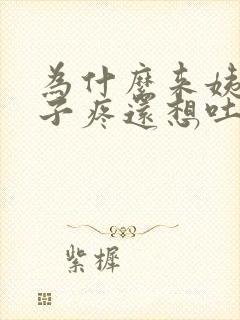 為什麼来姨
子疼還想吐
紫樨